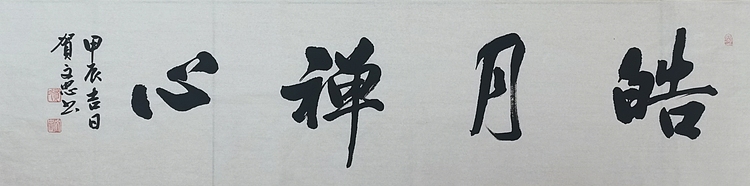 皓月禅心
甲辰吉日
贺文忠书